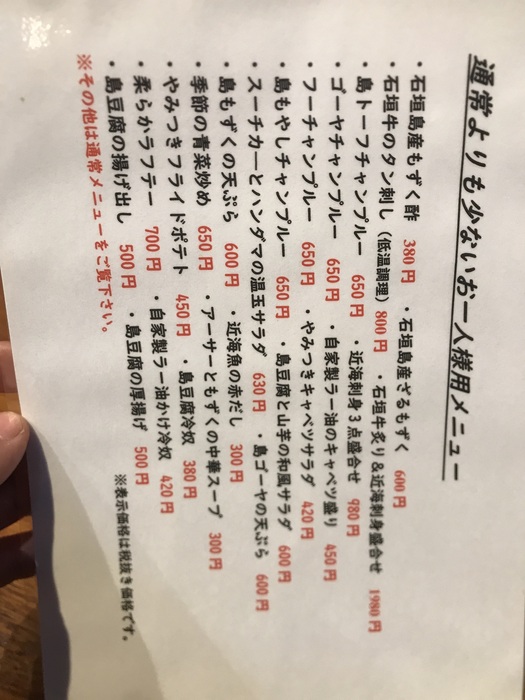 通常よりも少ないお一人様用メニュー
・石垣島産もずく酢 380円 ・石垣島産ざるもずく 600円
・石垣牛のタン刺し（低温調理）800円 ・石垣牛炙り&近海刺身盛合せ 1980円
・島トーフチャンプルー 650円 ・近海刺身3点盛合せ 980円
・ゴーヤチャンプルー 650円 ・自家製ラー油のキャベツ盛り 450円
・フーチャンプルー 650円 ・やみつきキャベツサラダ 420円
・島もやしチャンプルー 650円 ・島豆腐と山芋の和風サラダ 600円
・スーチカーとハンダマの温玉サラダ 630円 ・島ゴーヤの天ぷら 600円
・島もずくの天ぷら 600円 ・近海魚の赤だし 300円
・季節の青菜炒め 650円 ・アーサーともずくの中華スープ 300円
・やみつきフライドポテト 450円 ・島豆腐冷奴 380円
・柔らかラフテー 700円 ・自家製ラー油かけ冷奴 420円
・島豆腐の揚げ出し 500円 ・島豆腐の厚揚げ 500円
※その他は通常メニューをご覧下さい。
※表示価格は税抜き価格です。